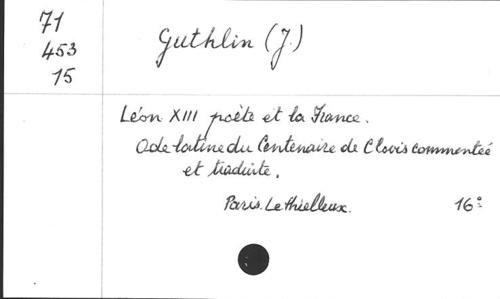 71
453
15
Guthlin (J.)
Léon XIII poète et la France.
Ode latine du Centenaire de Clovis commenteé
et traduite.
Paris. Lethielleux. 16°